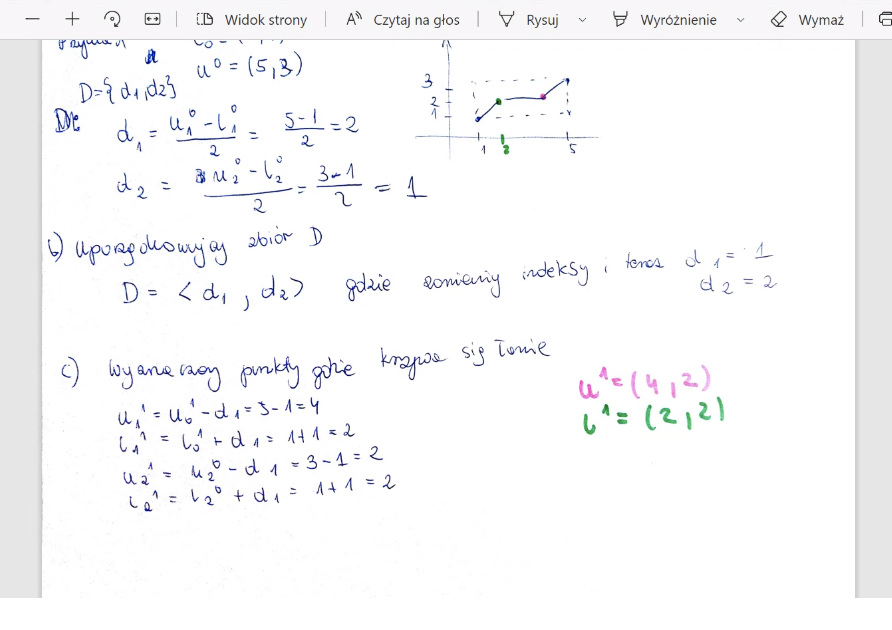 Widok strony
Czytaj na głos
Rysuj
Wyróżnienie
Wymaż
u⁰ = (5,3)
D={d₁,d₂}
3
2
1
1
2
5
d₁ = (u₁⁰ - l₁⁰)/2 = (5-1)/2 = 2
d₂ = (u₂⁰ - l₂⁰)/2 = (3-1)/2 = 1
b) uporządkowujemy zbiór D
D = <d₁, d₂> gdzie zmieniamy indeksy i teraz d₁ = 1
d₂ = 2
c) Wyznaczamy punkty gdzie krzywa się łamie
u₁¹ = u₀¹ - d₁ = 5-1=4
l₁¹ = l₀¹ + d₁ = 1+1 = 2
u₂¹ = u₂⁰ - d₁ = 3-1 = 2
l₂¹ = l₂⁰ + d₁ = 1+1 = 2
u¹=(4,2)
l¹=(2,2)